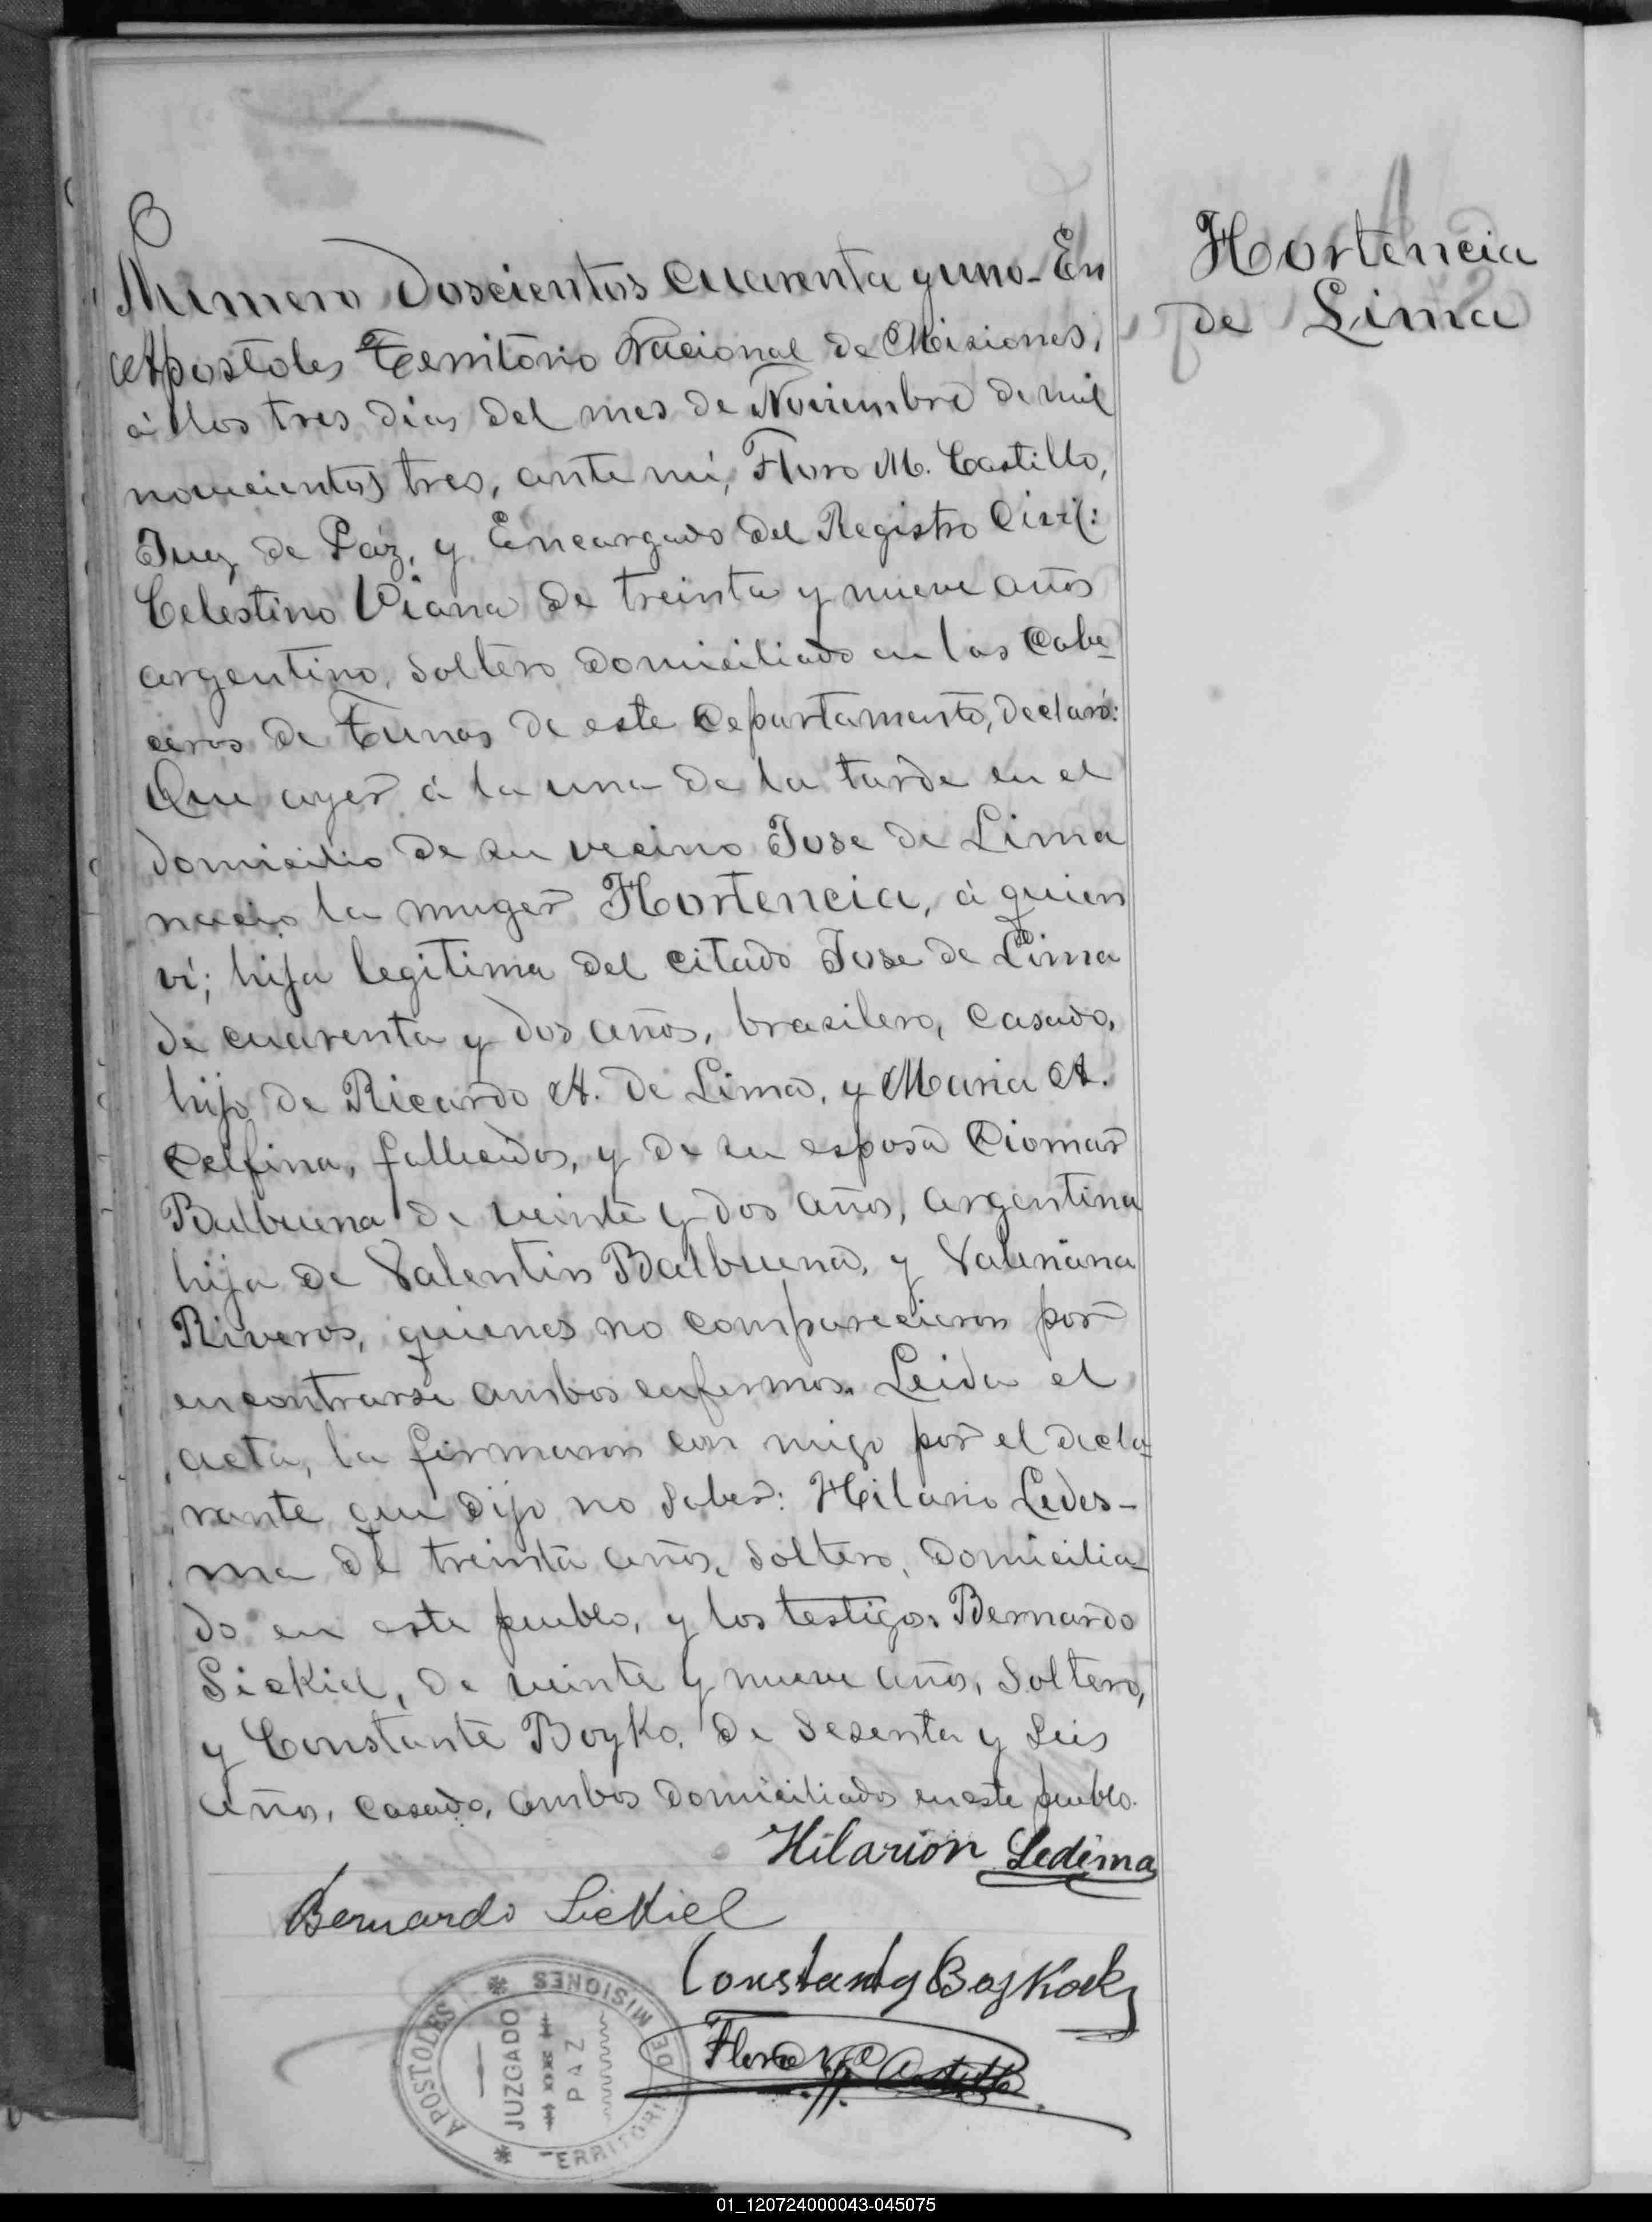 Hortencia
de Lima
Numero Doscientos cuarenta y uno - En
Apostoles Territorio Nacional de Misiones,
á los tres dias del mes de Noviembre de mil
novecientos tres, ante mi, Floro M. Castillo,
Juez de Paz, y Encargado del Registro Civil:
Celestino Viana de treinta y nueve años
argentino, soltero domiciliado en las Cabe-
ceras de Tunas de este Departamento, declaró:
Que ayer á la una de la tarde en el
domicilio de su vecino Jose de Lima
nacio la muger Hortencia, á quien
vi; hija legitima del citado Jose de Lima
de cuarenta y dos años, brasilero, casado,
hijo de Ricardo A. de Lima, y Maria A.
Delfina, fallecidos, y de su esposa Diomar
Balbuena de veinte y dos años, argentina
hija de Valentin Balbuena, y Valeriana
Riveros, quienes no comparecieron por
encontrarse ambos enfermos. Leida el
acta, la firmaron con migo por el decla-
rante que dijo no saber: Hilario Ledes-
ma de treinta años, soltero, domicilia-
do en este pueblo, y los testigos Bernardo
Siekiel, de veinte y nueve años, soltero,
y Constante Boyko, de sesenta y seis
años, casado, ambos domiciliados en este pueblo.
Hilarion Ledema
Bernardo Siekiel
Constanty
Floro M. Castillo
APOSTOLES * MISIONES
JUZGADO
DE
PAZ
* TERRITORIO DE
01_120724000043-045075